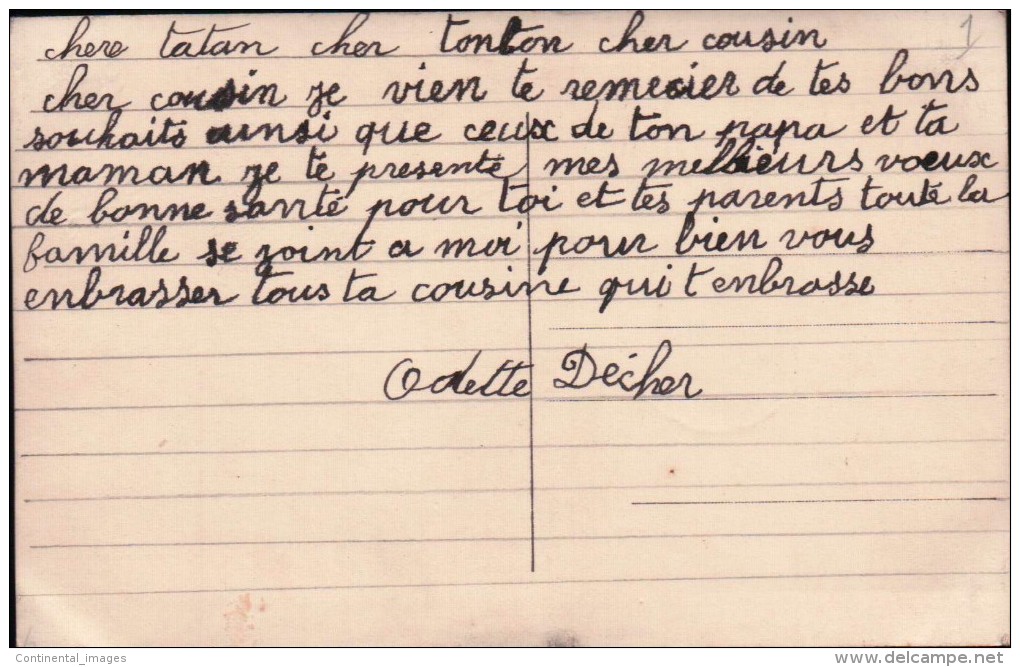 1
chere tatan cher tonton cher cousin
cher cousin je vien te remecier de tes bons
souhaits ainsi que ceux de ton papa et ta
maman je te presente mes mellieurs voeux
de bonne santé pour toi et tes parents toute la
famille se joint a moi pour bien vous
enbrasser tous ta cousine qui t enbrasse
Odette Décher
Continental_images
delcampe.net